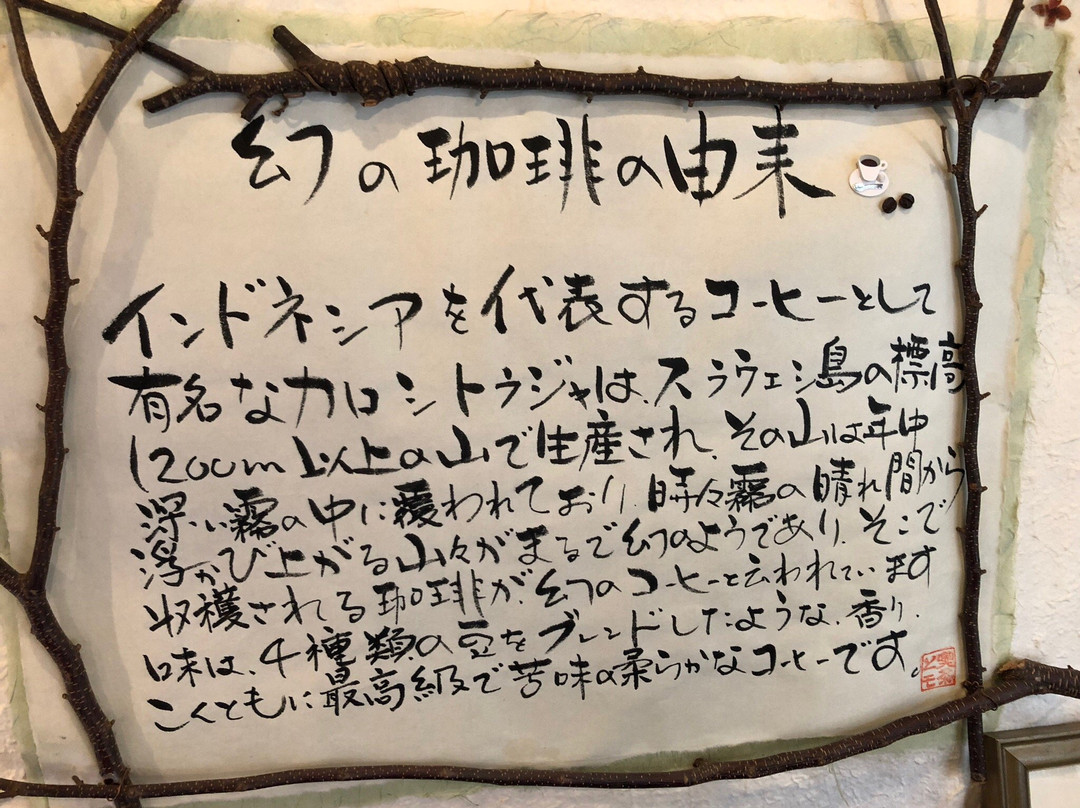 幻の珈琲の由来
インドネシアを代表するコーヒーとして
有名なカロシトラジャは、スラウェシ島の標高
1200m以上の山で生産され、その山は年中
深い霧の中に覆われており、時々霧の晴れ間から
浮かび上がる山々がまるで幻のようであり、そこで
収穫される珈琲が、幻のコーヒーと云われています
味は、4種類の豆をブレンドしたような、香り、
こくともに最高級で苦味の柔らかなコーヒーです。